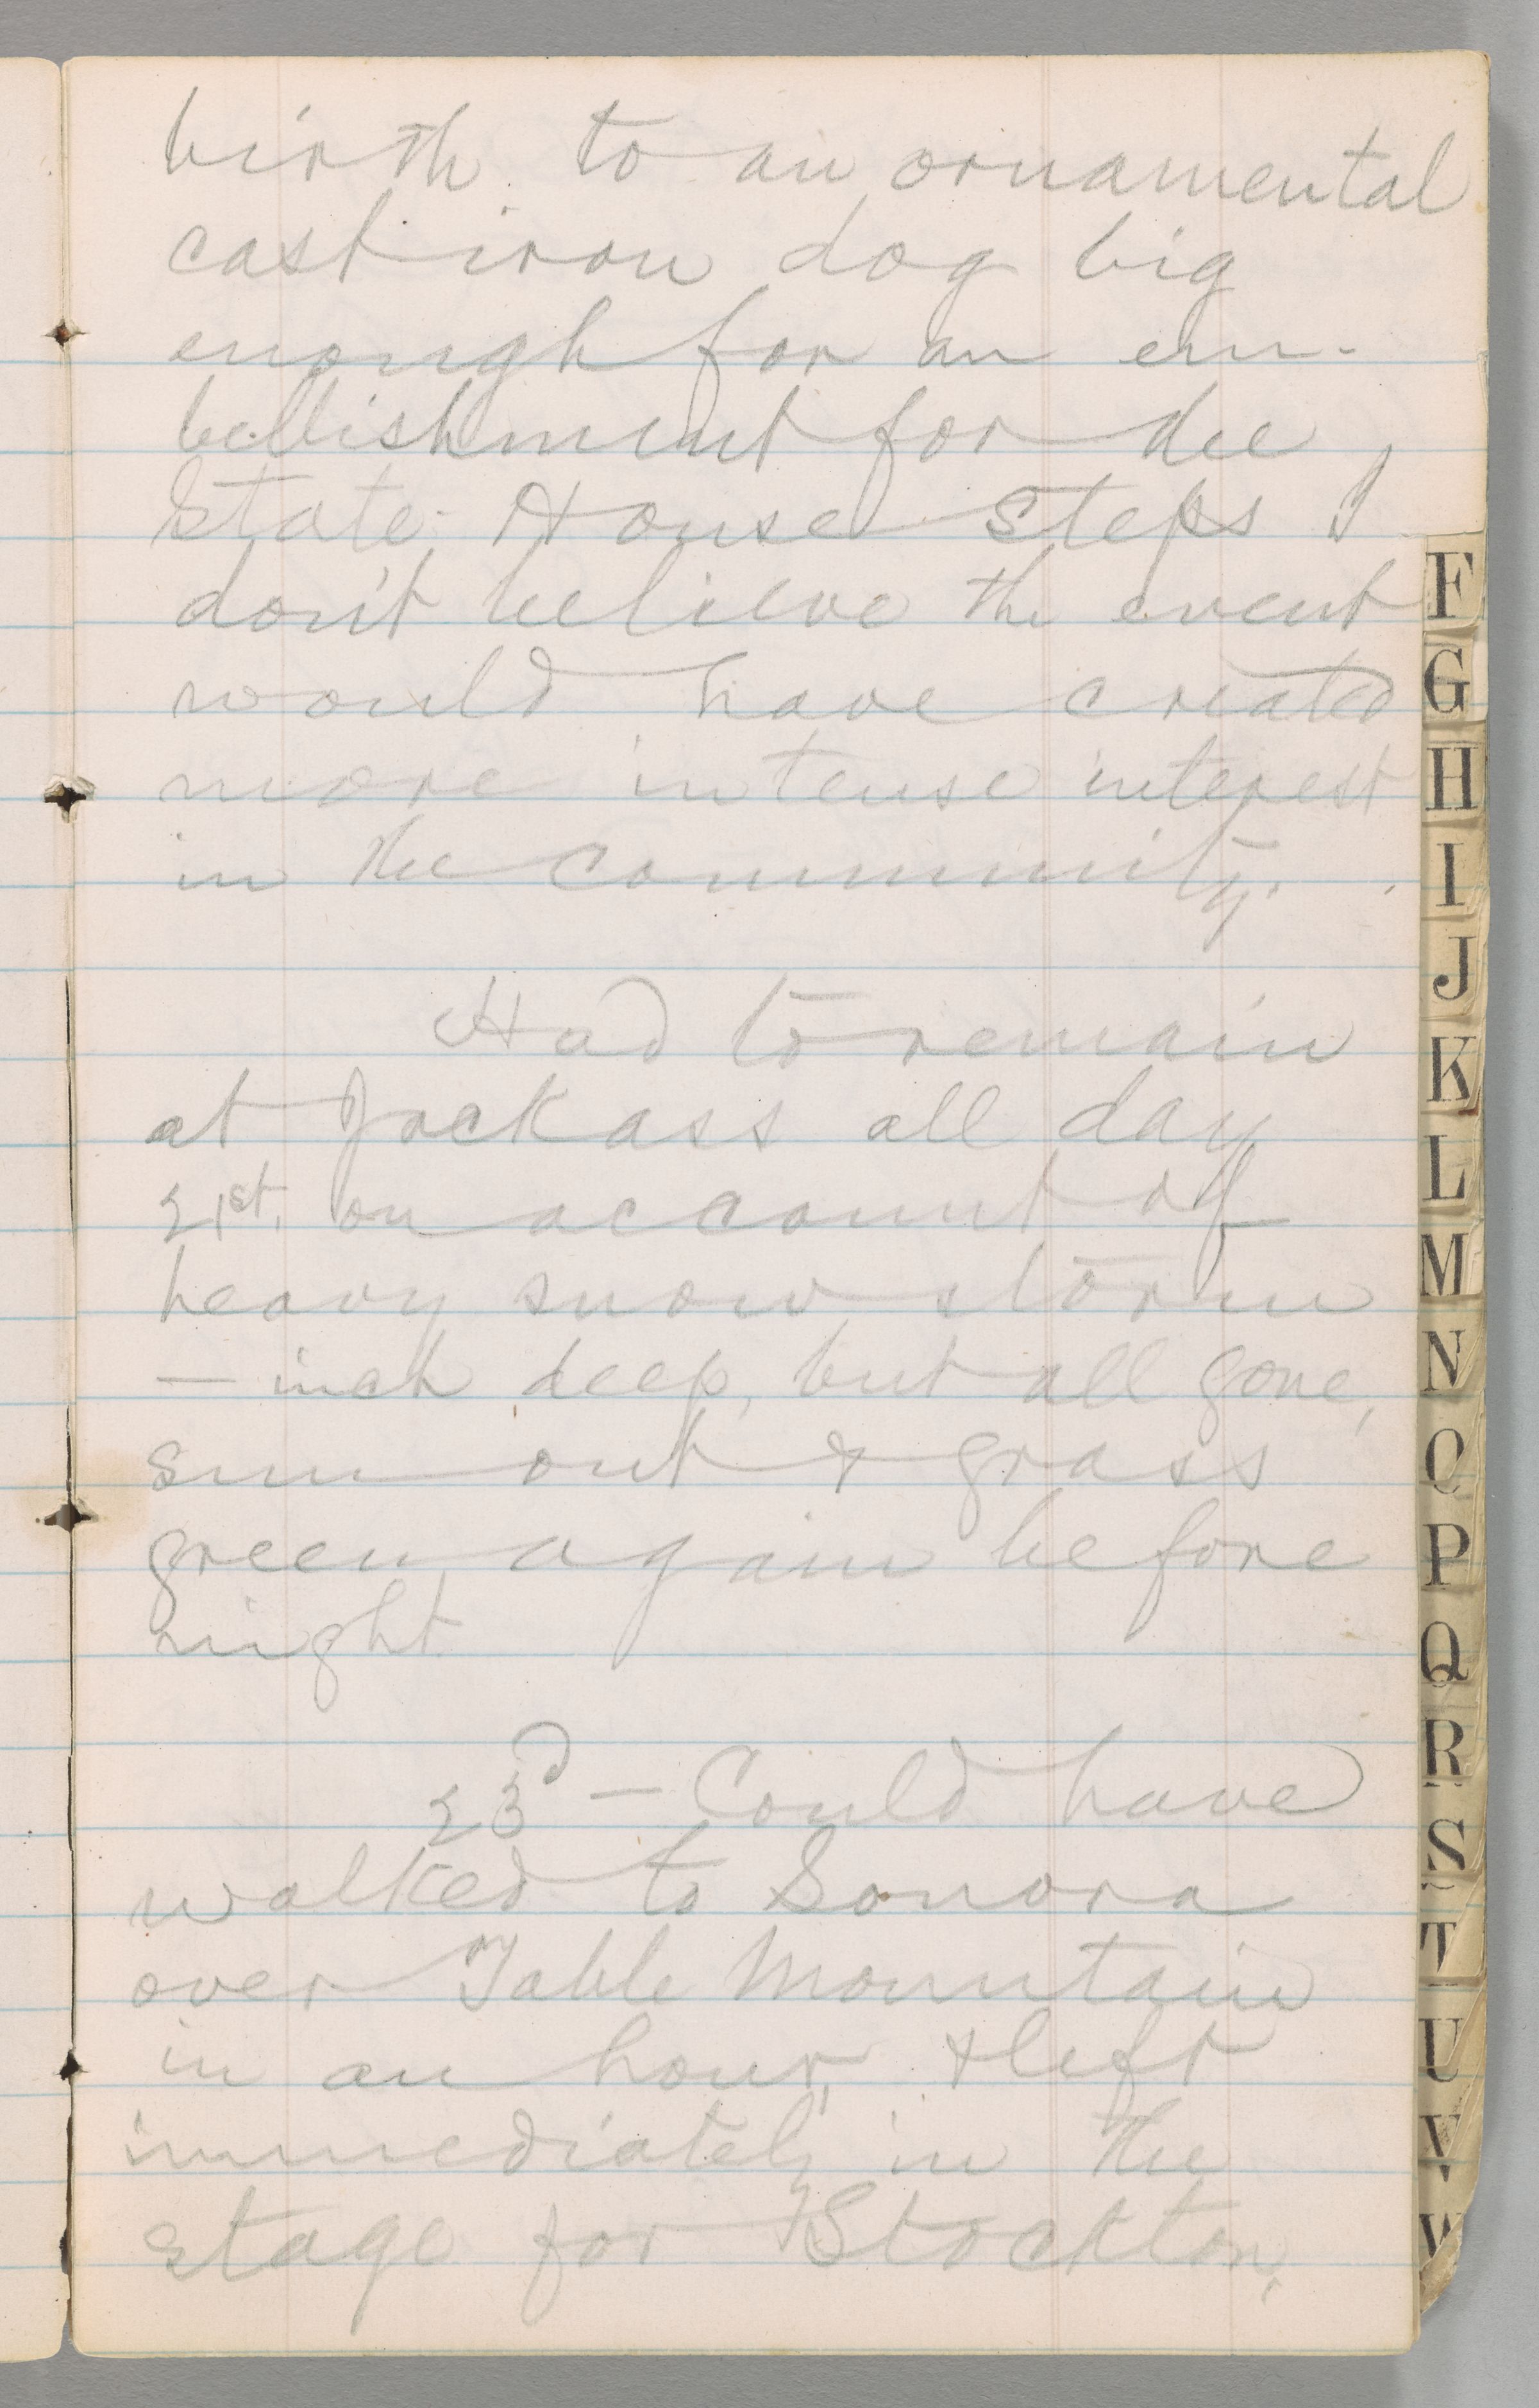 birth to an ornamental
cast iron dog big
enough for an em-
bellishment for the
State House steps I
don't believe the event
would have created
more intense interest
in the community.
Had to remain
at Jackass all day
21st. on account of
heavy snow storm
— inch deep, but all gone,
sun out & grass
green again before
night.
23d — Could have
walked to Sonora
over Table Mountain
in an hour, & left
immediately in the
stage for Stockton,
F
G
H
I
J
K
L
M
N
O
P
Q
R
S
T
U
V
W